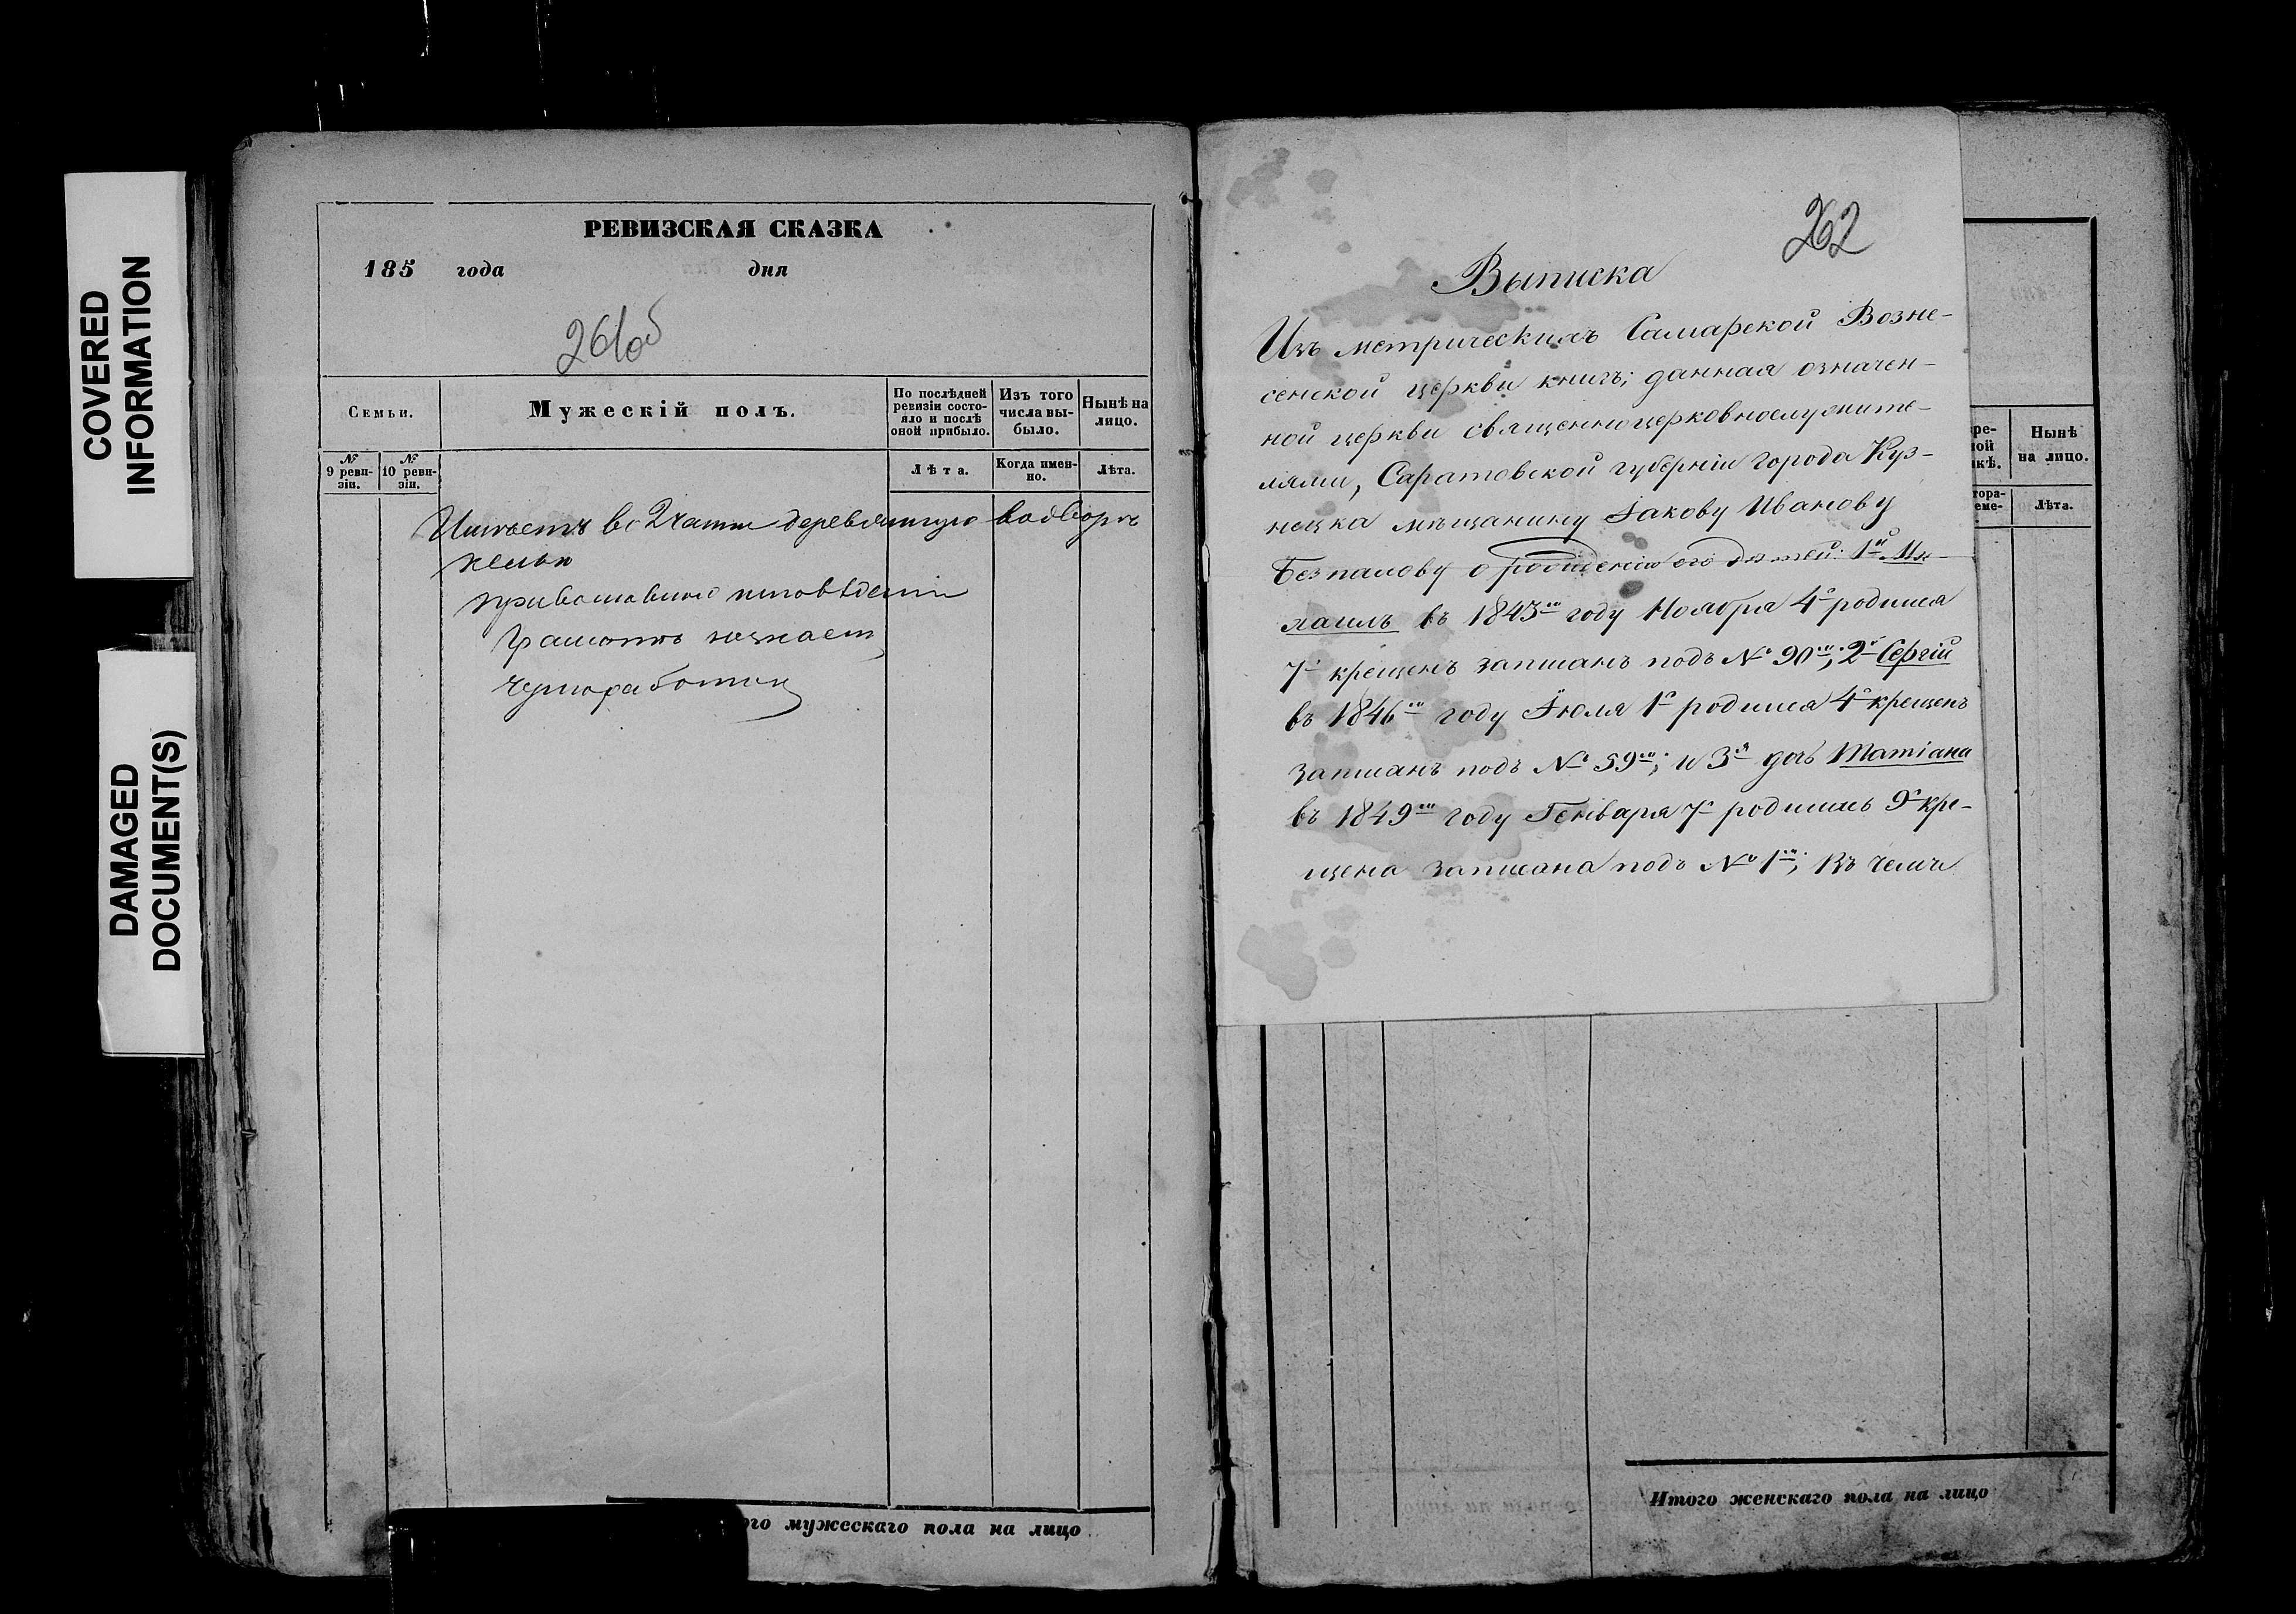 COVERED
INFORMATION
DAMAGED
DOCUMENT(S)
РЕВИЗСКАЯ СКАЗКА
185 года дня
261об
Семьи.
Мужескій полъ.
По послѣдней
ревизіи состо-
яло и послѣ
оной прибыло.
Изъ того
числа вы-
было.
Нынѣ на
лицо.
№
9 реви-
зіи.
№
10 реви-
зіи.
Лѣта.
Когда имен-
но.
Лѣта.
Имѣетъ во 2 части деревянную во дворѣ
келью
православнаго исповѣденія
Грамотѣ незнает
Чернорабочих
ого мужескаго пола на лицо
262
Выписка
Изъ метрическихъ Самарской Возне-
сенской церкви книгъ; данная означен-
ной церкви священноцерковнослужите-
лями, Саратовской губерніи города Куз-
нецка мѣщанину Іакову Иванову
Безпалову о рожденіи его дѣтей: 1й Ми-
хаилъ въ 1843м году Ноября 4го родился
7го крещенъ записанъ подъ № 90м; 2й Сергій
въ 1846м году Іюля 1го родился 4го крещенъ
записанъ подъ № 59м; и 3я дочь Татіана
въ 1849м году Генваря 7го родилась 9го кре-
щена записана подъ № 1м; Въ чемъ
ре-
ной
кѣ.
Нынѣ
на лицо.
тора-
еме-
Лѣта.
Итого женскаго пола на лицо